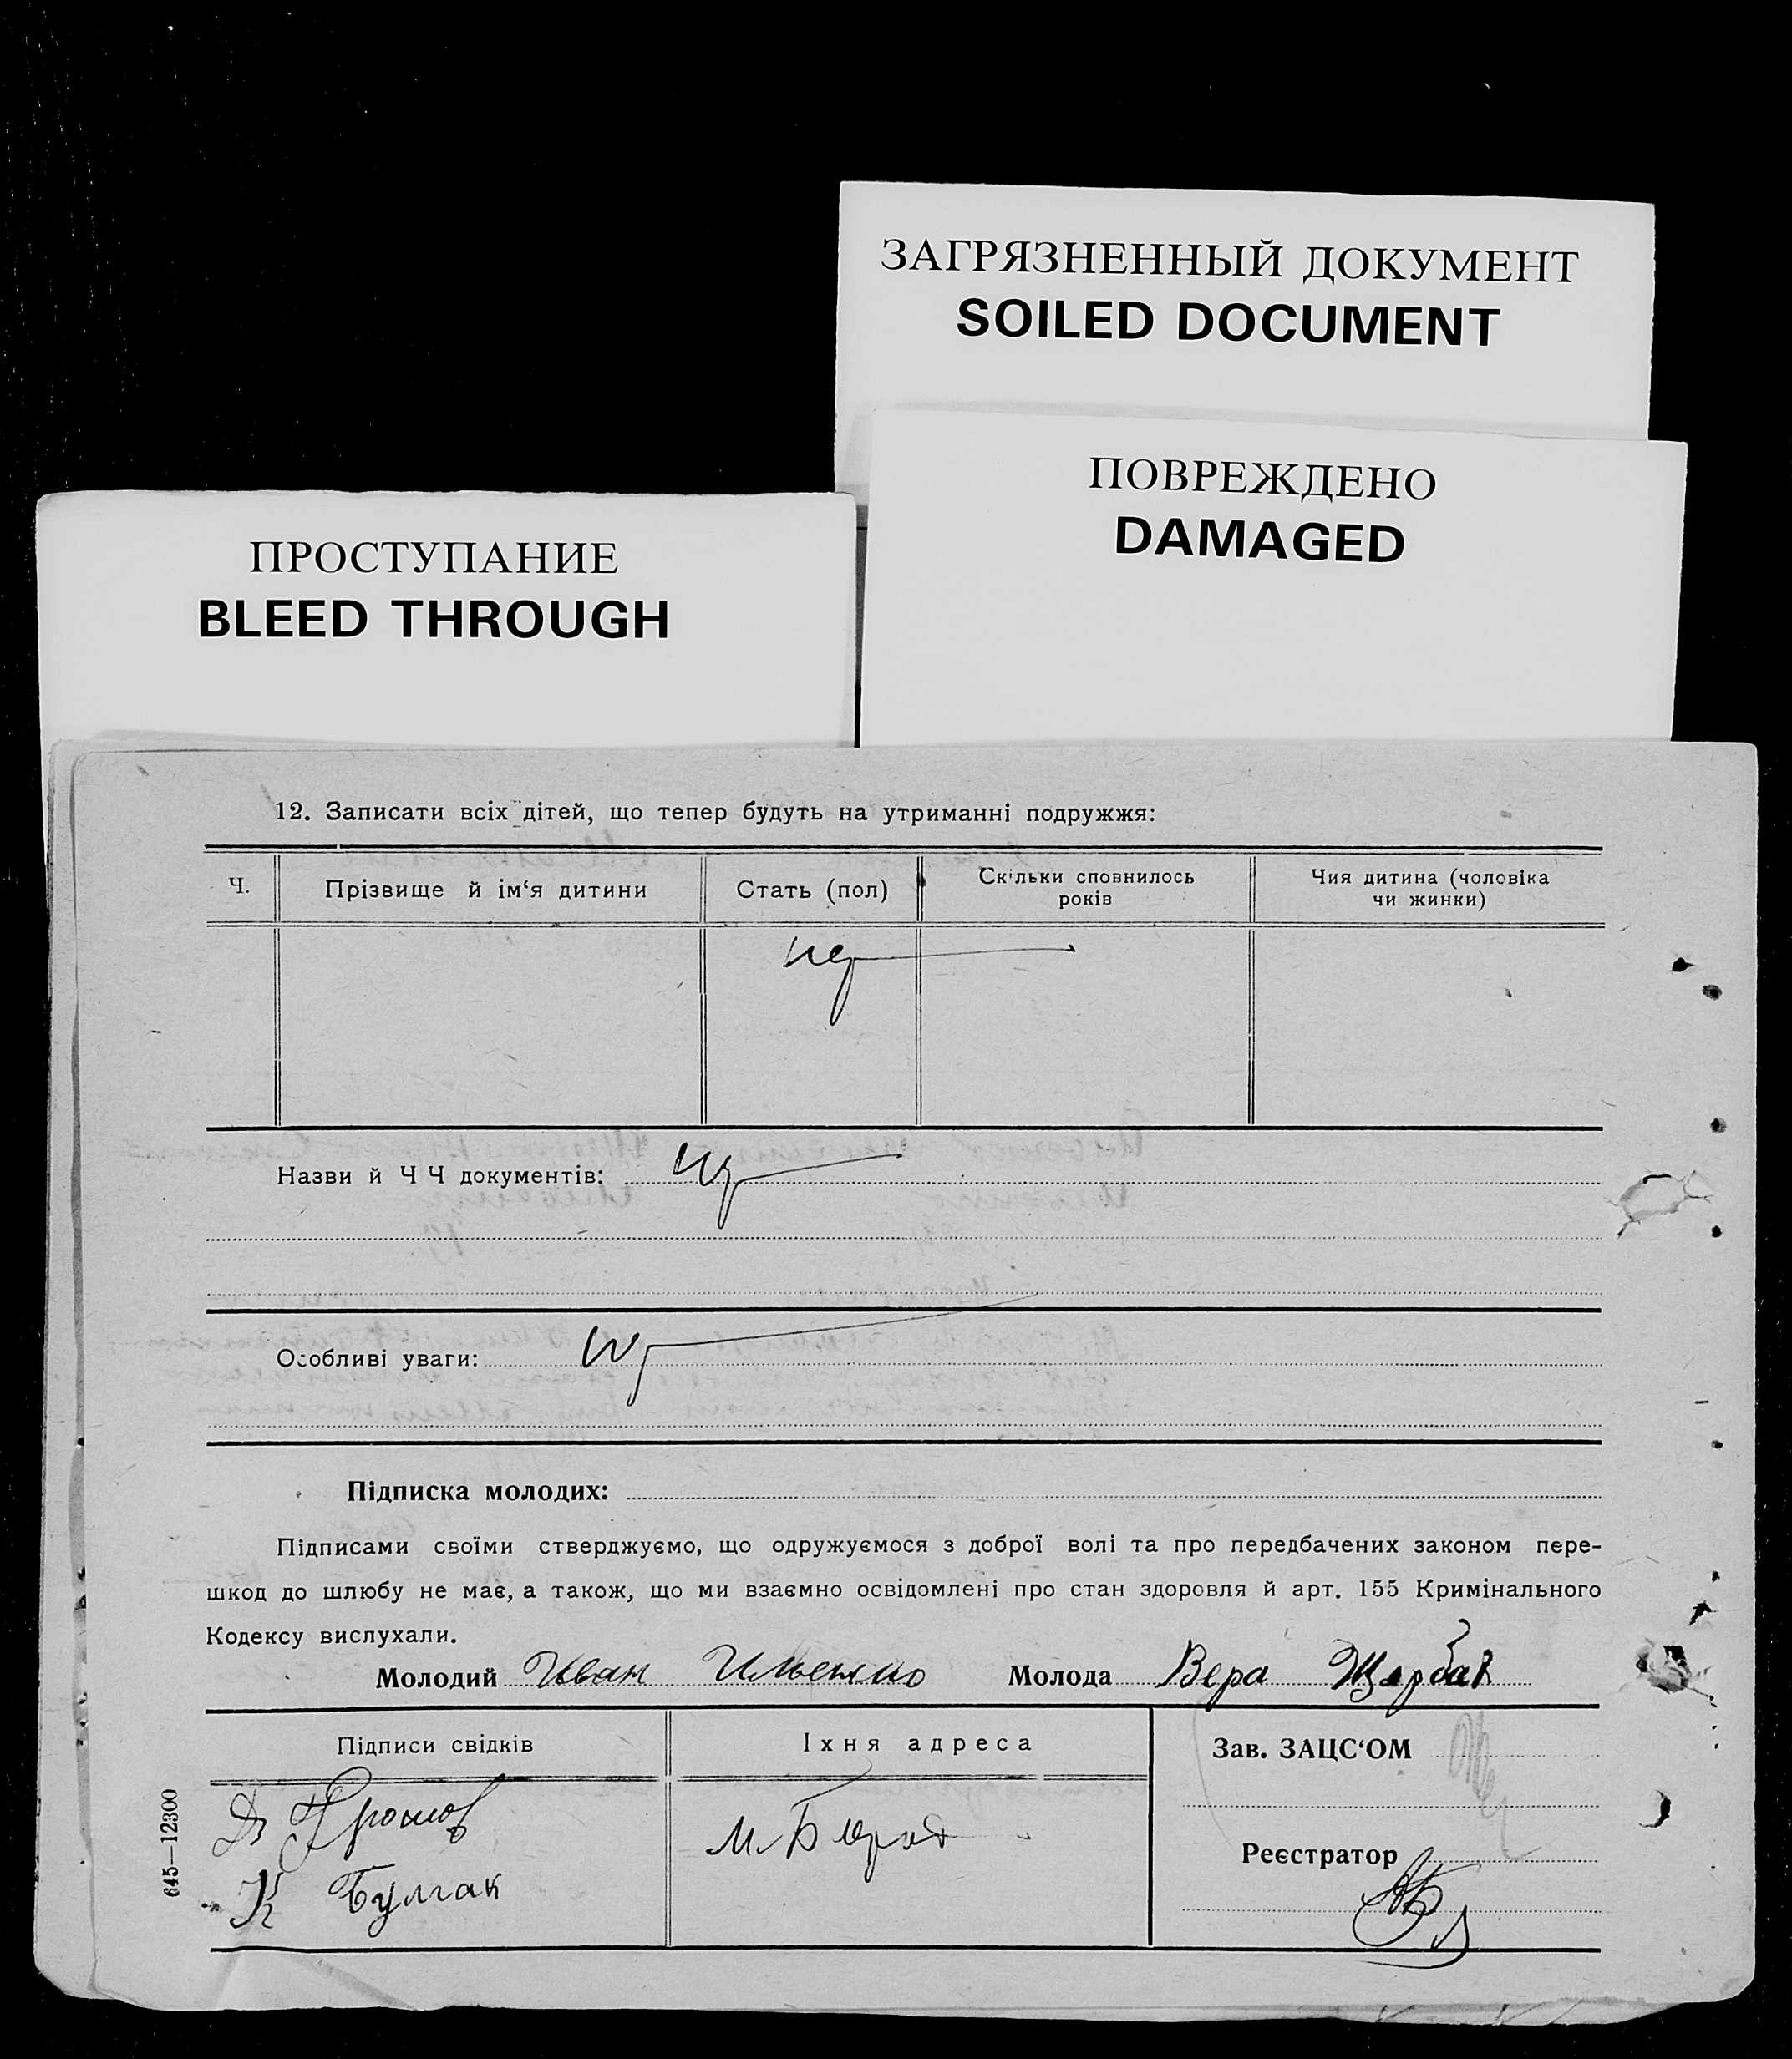 ЗАГРЯЗНЕННЫЙ ДОКУМЕНТ
SOILED DOCUMENT
ПОВРЕЖДЕНО
DAMAGED
ПРОСТУПАНИЕ
BLEED THROUGH
12. Записати всіх дітей, що тепер будуть на утриманні подружжя:
Ч.
Прізвище й ім‘я дитини
Стать (пол)
Скільки сповнилось
років
Чия дитина (чоловіка
чи жинки)
Назви й Ч Ч документів:
Особливі уваги:
Підписка молодих:
Підписами своїми стверджуємо, що одружуємося з доброї волі та про передбачених законом пере-
шкод до шлюбу не має, а також, що ми взаємно освідомлені про стан здоровля й арт. 155 Кримінального
Кодексу вислухали.
Молодий Иван Ильенко Молода Вера Щербак
Підписи свідків
Їхня адреса
Зав. ЗАЦС‘ОМ
К Булгак
Реєстратор
645—12300